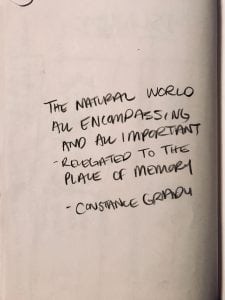 THE NATURAL WORLD
ALL ENCOMPASSING
AND ALL IMPORTANT
- RELEGATED TO THE
PLACE OF MEMORY
- CONSTANCE GRADY